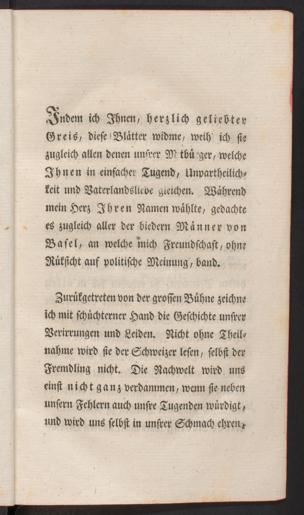 Indem ich Ihnen, herzlich geliebter
Greis, diese Blätter widme, weih' ich sie
zugleich allen denen unsrer Mitbürger, welche
Ihnen in einfacher Tugend, Unpartheilich-
keit und Vaterlandsliebe gleichen. Während
mein Herz Ihren Namen wählte, gedachte
es zugleich aller der biedern Männer von
Basel, an welche mich Freundschaft, ohne
Rüksicht auf politische Meinung, band.
Zurükgetreten von der grossen Bühne zeichne
ich mit schüchterner Hand die Geschichte unsrer
Verirrungen und Leiden. Nicht ohne Theil-
nahme wird sie der Schweizer lesen, selbst der
Fremdling nicht. Die Nachwelt wird uns
einst nicht ganz verdammen, wenn sie neben
unsern Fehlern auch unsre Tugenden würdigt,
und wird uns selbst in unsrer Schmach ehren,